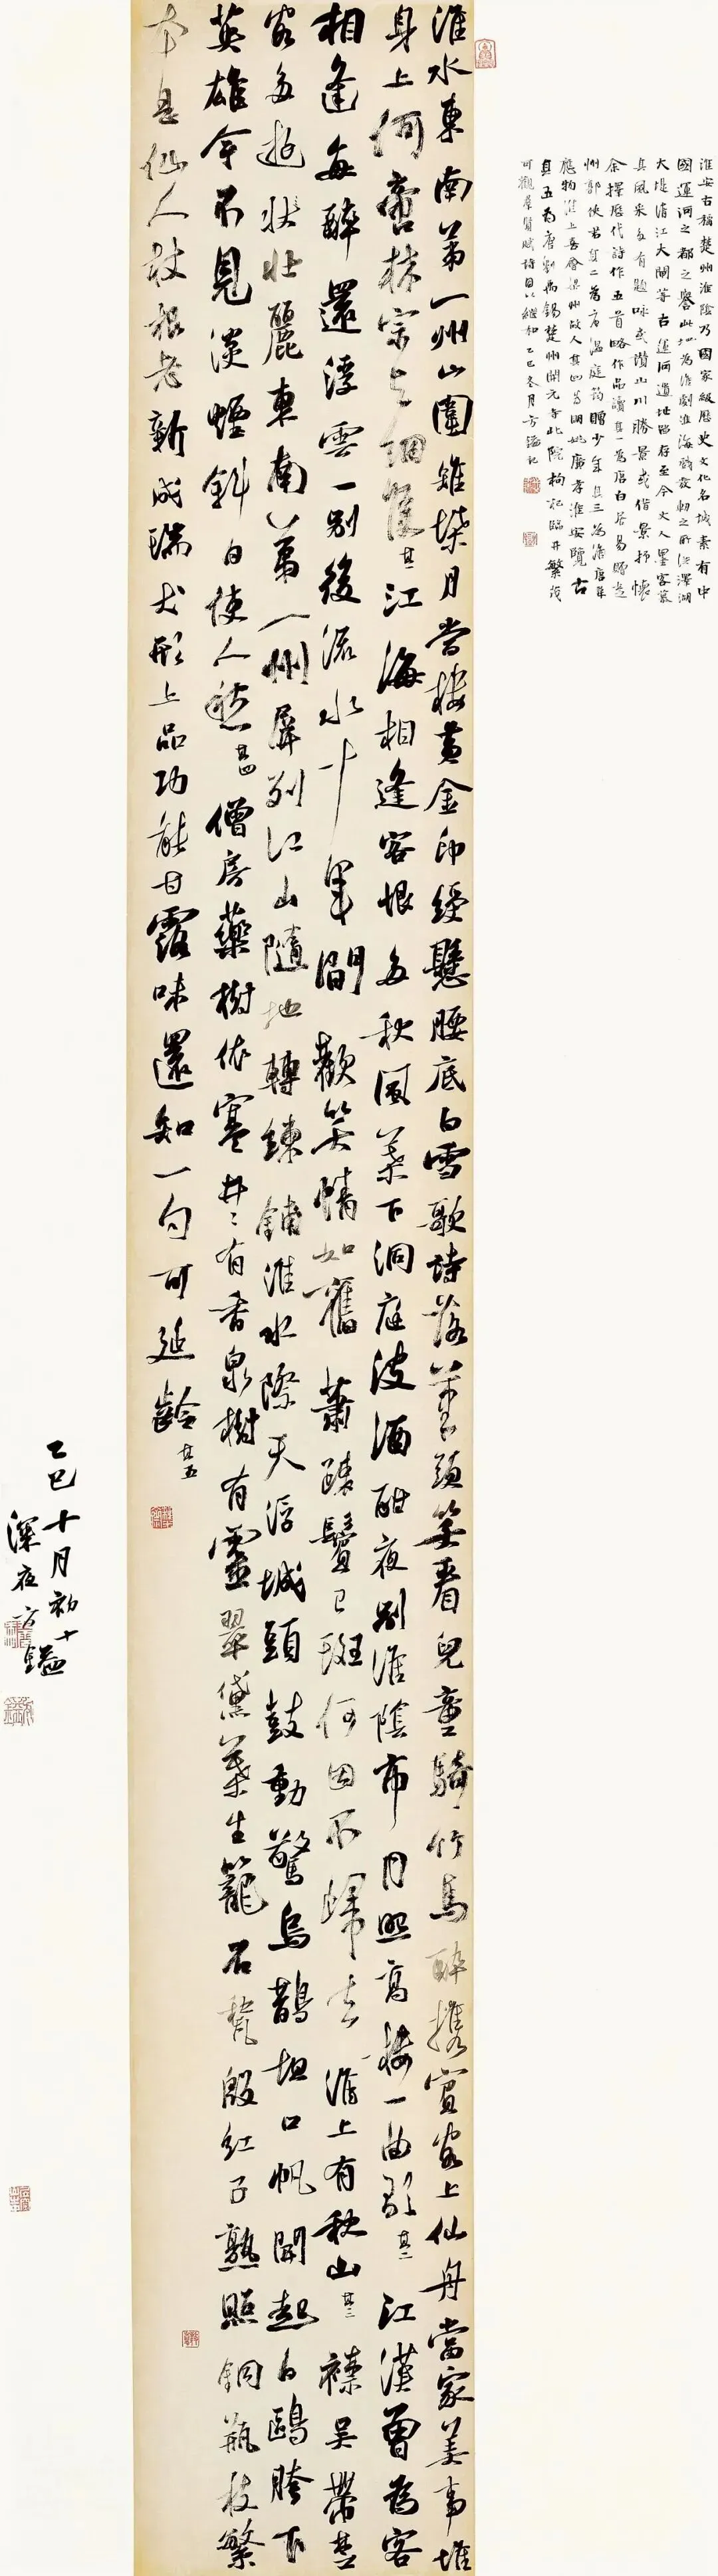 淮安古稱楚州淮陰乃國家級歷史文化名城素有中
國運河之都之譽此地為淮劇淮海戲發軔之所洪澤湖
大堤清江大閘等古運河遺址留存至今文人墨客慕
其風采多有題咏或讚山川勝景或借景抒懷
余擇歷代詩作五首略作品讀其一為唐白居易贈楚
州郭使君其二為唐溫庭筠贈少年其三為唐韋
應物淮上喜會梁州故人其四為明姚廣孝淮安覽古
其五為唐劉禹錫楚州開元寺北院枸杞臨井繁茂
可觀群賢賦詩因以繼和 乙巳冬月方鎰記
淮水東南第一州山圍雉堞月當樓黃金印綬懸腰底白雪歌詩落筆頭笑看兒童騎竹馬醉攜賓客上仙舟當家美事堆
身上何啻林宗與細侯其一江海相逢客恨多秋風葉下洞庭波酒酣夜別淮陰市月照高樓一曲歌其二江漢曾為客
相逢每醉還浮雲一別後流水十年間歡笑情如舊蕭疎鬢已斑何因不歸去淮上有秋山其三襟吳帶楚
客多遊狀壯麗東南第一州屏列江山隨地轉鍊鋪淮水際天浮城頭鼓動驚烏鵲垻口帆開起白鷗胯下
英雄今不見淡煙斜日使人愁其四僧房藥樹依寒井井有香泉樹有靈翠黛葉生籠石甃殷紅子熟照銅瓶枝繁
本是仙人杖根老新成瑞犬形上品功能甘露味還知一勺可延齡其五
乙巳十月初十
深夜方鎰